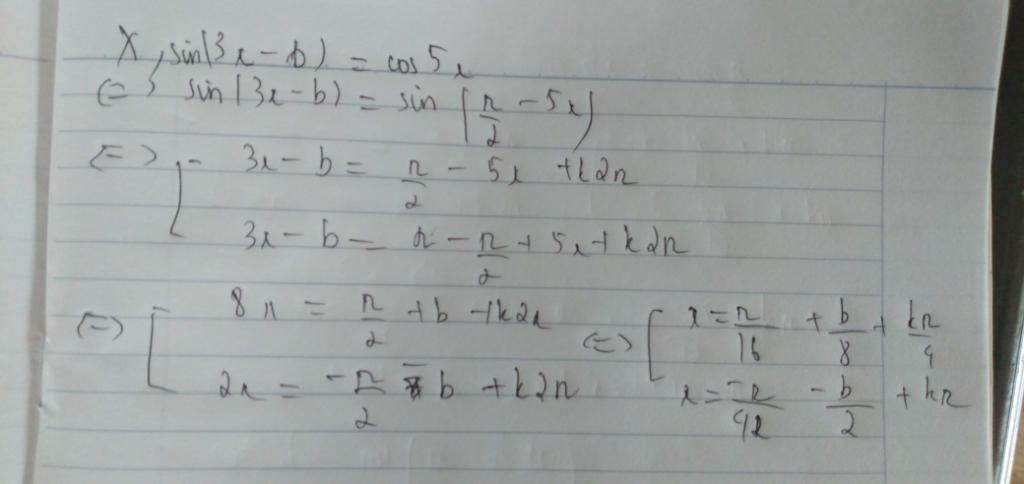 X, sin(3x - b) = cos 5x
<=> sin(3x - b) = sin (π/2 - 5x)
<=> [ 3x - b = π/2 - 5x + k2π
3x - b = π - π/2 + 5x + k2π
<=> [ 8x = π/2 + b + k2π <=> [ x = π/16 + b/8 + kπ/4
2x = -π/2 - b + k2π x = -π/4 - b/2 + kπ